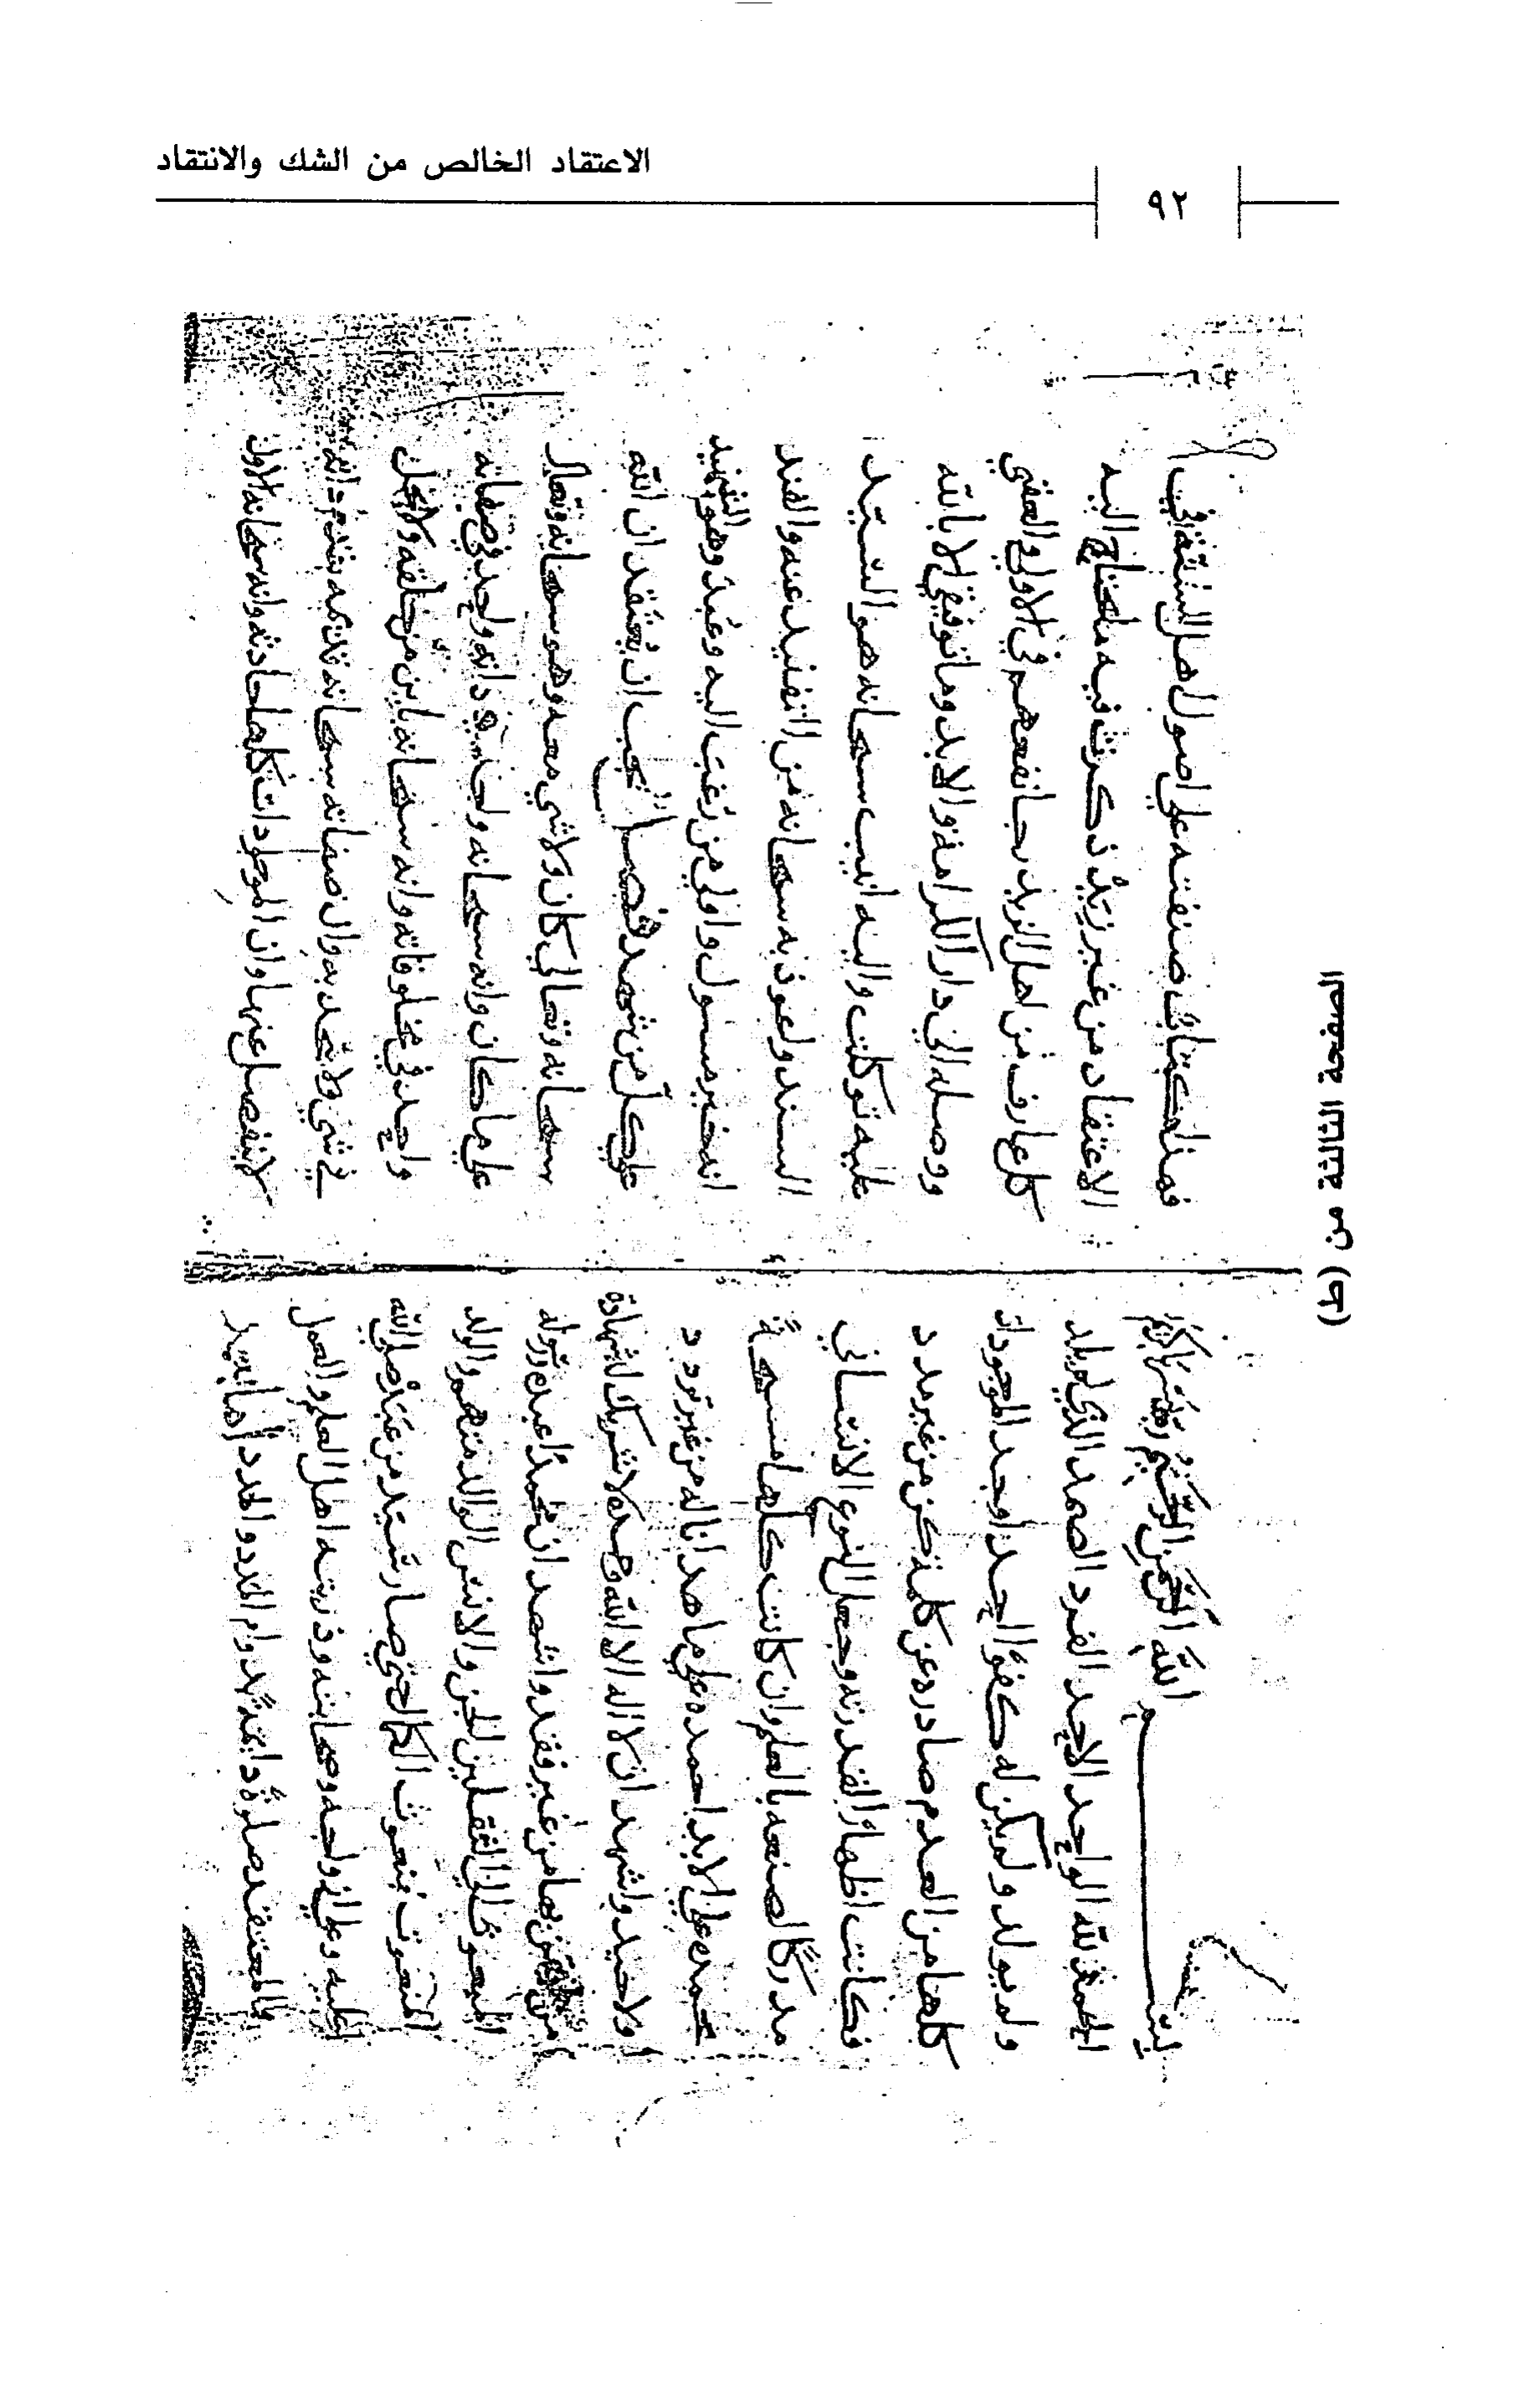 الاعتقاد الخالص من الشك والانتقاد
٩٢
بسم الله الرحمن الرحيم وبه نستعين
الحمد لله الواحد الاحد الفرد الصمد الذي لم يلد
ولم يولد ولم يكن له كفوا احد اوجد الموجودات
كلها من العدم صادرة عن كلمة كن من غير مدد
فكانت اظهارا لقدرته وجعل النوع الانساني
مدركا لصنعه بالعلم وان كانت كلها مسبحة
بحمده على الابد احمده على ما هدانا له من غير تردد
ولا حيد واشهد ان لا اله الا الله وحده لا شريك له شهادة
من غير فقد واشهد ان محمدا عبده ورسوله
المبعوث الى الثقلين الجن والانس الوالد منهم والولد
المنعوت بنعوت الكمال حتى صار سيد من عبد صلى الله
عليه وعلى ازواجه وصحابته وذريته اهل العلم والعمل
والمعتقد صلوة دائمة بدوام المدد والمدد اما بعد
فهذا كتاب صنفته على اصول اهل السنة في
الاعتقاد من غير زيد ذكرت فيه ما يحتاج اليه
كل عارف من اهل الزبد رجا نفعهم في الاولى والعقبى
ووصله الى دار الكرامة والابد وما توفيقي الا بالله
عليه توكلت واليه انيب سبحانه هو السيد
السند واعوذ به سبحانه من التفنيد عنه والفند
انه خير مسئول واولى من رغبت اليه وعبد وهو الشهيد
على كل من شهد فصل يجب ان يعتقد ان الله
سبحانه وتعالى كان ولا شي معه وهو سبحانه وتعالى
على ما كان وانه سبحانه واحد في ذاته واحد في صفاته
واحد في مخلوقاته وانه سبحانه باين من خلقه ولا يحل
في شي ولا يتحد به وان صفاته سبحانه قديمة بقدم ذاته
لا ينفصل عنها وان الموجودات كلها حادثة وانه سبحانه الاول
الصفحة الثالثة من (ط)